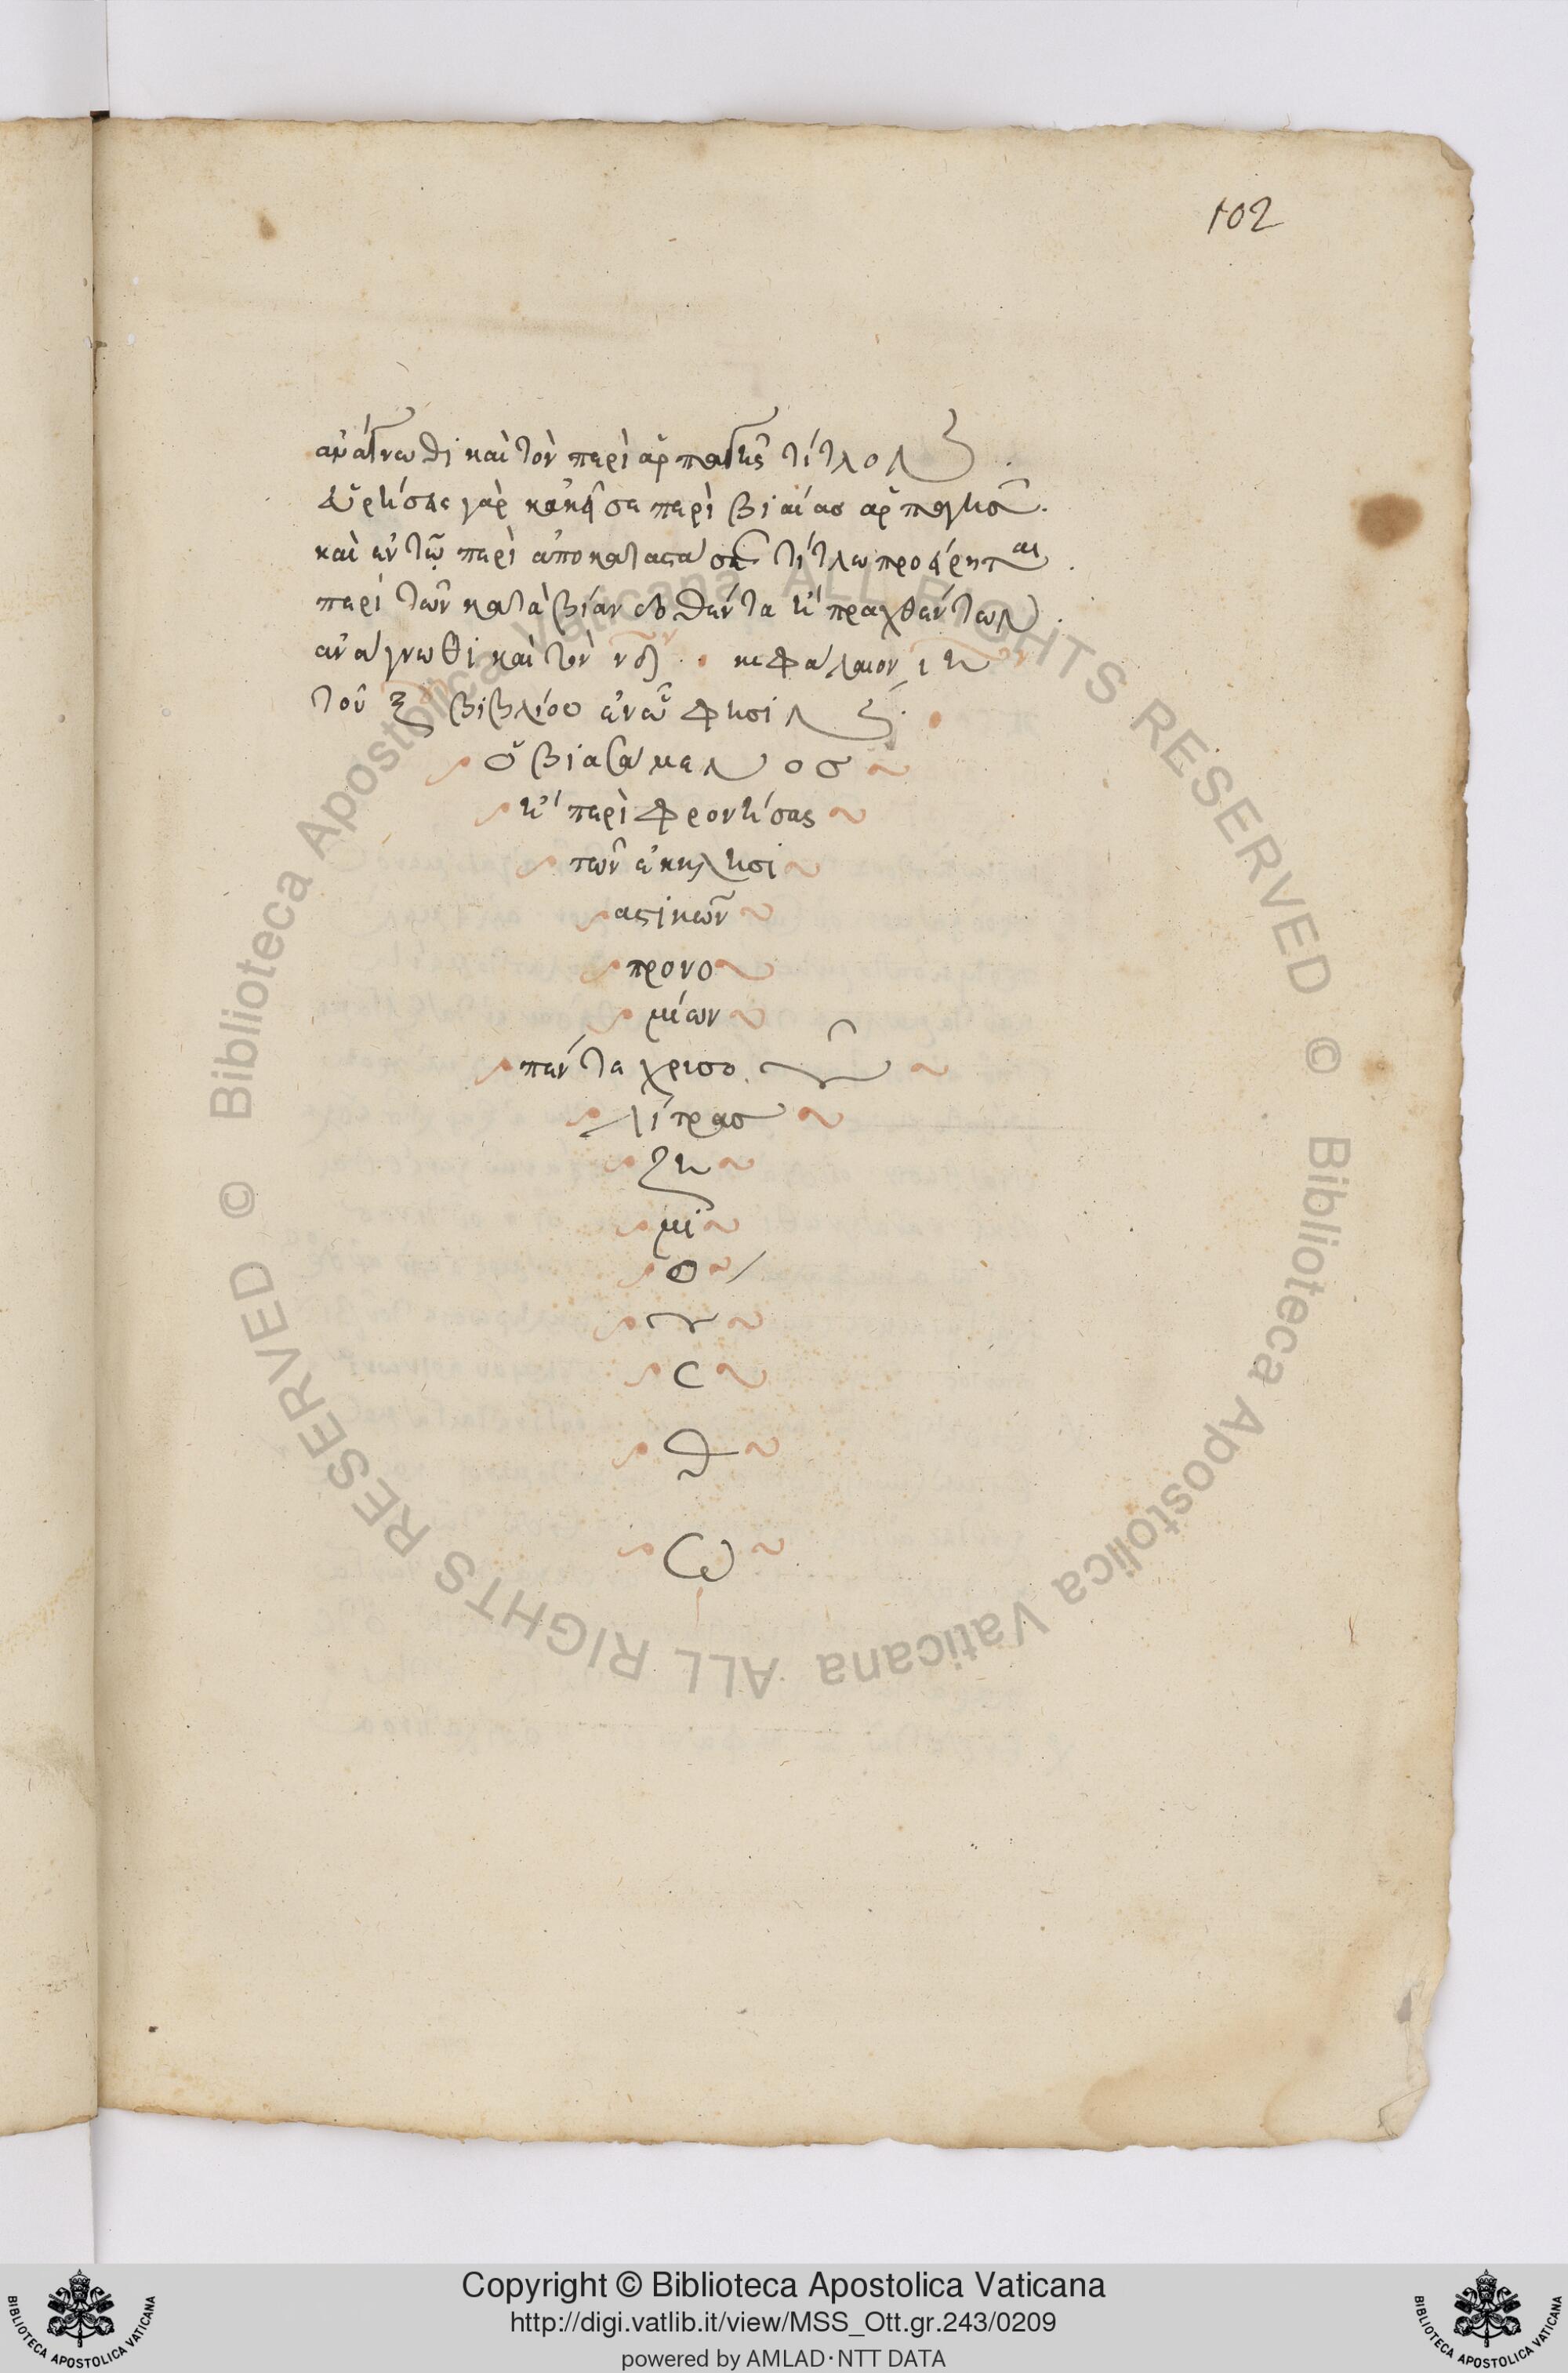 102
ἀνάγνωθι καὶ τὸν περὶ ἁρπαγῆς τίτλον
εὑρήσεις γὰρ κἀκεῖσε περὶ βιαίας ἁρπαγῆς.
καὶ ἐν τῷ περὶ ἀποκαταστάσεως τίτλω προφέρεται.
περὶ τῶν κατὰ βίαν ἐλθόντα ἢ πραχθέντων.
ἀνάγνωθι καὶ τὸν νδ. κεφάλαιον ιη
τοῦ ξ βιβλίου ἐν ᾧ φησιν
ὁ βιασάμενος
ἢ περὶ φροντίσας
τῶν ἐκκλησι
αστικῶν
προνο
μίων
πέντε χρισοῦ
λίτρας
ζη
μι
ο
υ
σ
θ
ω
Copyright © Biblioteca Apostolica Vaticana
http://digi.vatlib.it/view/MSS_Ott.gr.243/0209
powered by AMLAD·NTT DATA
BIBLIOTECA APOSTOLICA VATICANA
BIBLIOTECA APOSTOLICA VATICANA
© Biblioteca Apostolica Vaticana ALL RIGHTS RESERVED
© Biblioteca Apostolica Vaticana ALL RIGHTS RESERVED